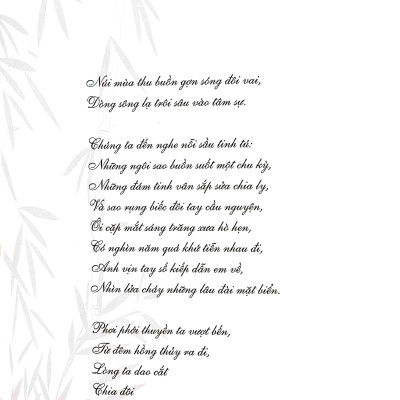 Núi mùa thu buồn gợn sóng đôi vai,
Dòng sông lạ trôi sâu vào tâm sự.
Chúng ta đến nghe nỗi sầu tinh tú:
Những ngôi sao buồn suốt một chu kỳ,
Những đám tinh vân sắp sửa chia ly,
Và sao rụng biếc đôi tay cầu nguyện,
Ôi cặp mắt sáng trăng xưa hò hẹn,
Có nghìn năm quá khứ tiễn nhau đi,
Anh vịn tay số kiếp dẫn em về,
Nhìn lửa cháy những lâu đài mặt biển.
Phơi phới thuyền ta vượt bến,
Từ đêm hồng thủy ra đi,
Lòng ta dao cắt
Chia đôi